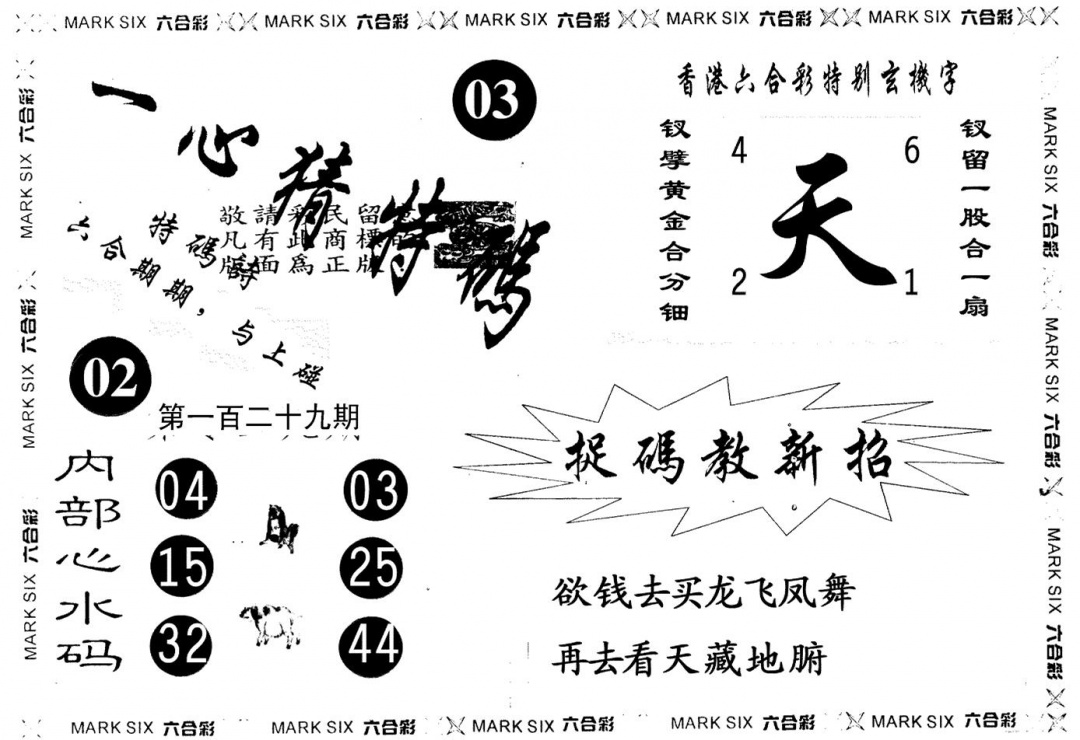 MARK SIX 六合彩 MARK SIX 六合彩 MARK SIX 六合彩 MARK SIX 六合彩 MARK SIX 六合彩
MARK SIX 六合彩
MARK SIX 六合彩
MARK SIX 六合彩
一心猜特碼
03
敬請彩民留意
凡有此商標的
版面為正版
特碼詩
六合期期，与上碰
02
第一百二十九期
内部心水码
04 03
15 25
32 44
香港六合彩特别玄機字
钗擘黄金合分钿
4 6
天
2 1
钗留一股合一扇
捉碼教新招
欲钱去买龙飞凤舞
再去看天藏地腑
MARK SIX 六合彩
MARK SIX 六合彩
MARK SIX 六合彩
MARK SIX 六合彩 MARK SIX 六合彩 MARK SIX 六合彩 MARK SIX 六合彩 MARK SIX 六合彩